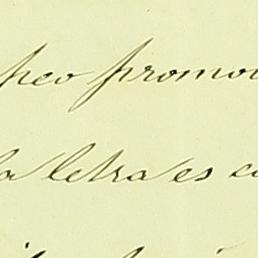 peo promov
la letra es co